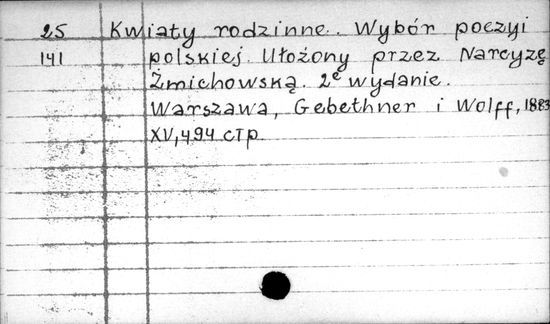 25 Kwiaty rodzinne. Wybór poezyi
141 polskiej. Ułożony przez Narcyzę
Żmichowską. 2e wydanie.
Warszawa, Gebethner i Wolff, 1883
XV, 494 стр